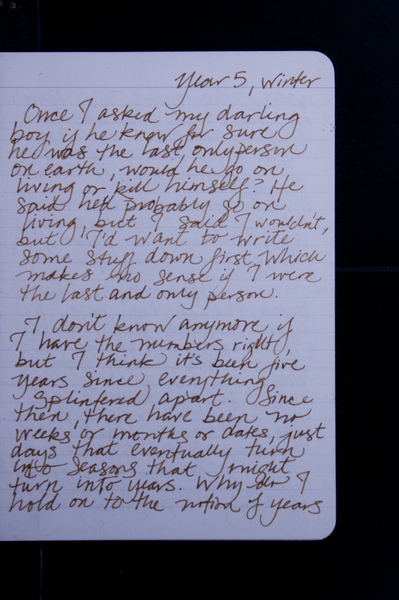 Year 5, Winter
Once I asked my darling
boy if he knew for sure
he was the last, only person
on earth, would he go on
living or kill himself? He
said he'd probably go on
living, but I said I wouldn't,
but I'd want to write
some stuff down first which
makes no sense if I were
the last and only person.
I don't know anymore if
I have the numbers right,
but I think it's been five
years since everything
splintered apart. Since
then, there have been no
weeks or months or dates, just
days that eventually turn
into seasons that might
turn into years. Why do I
hold on to the notion of years